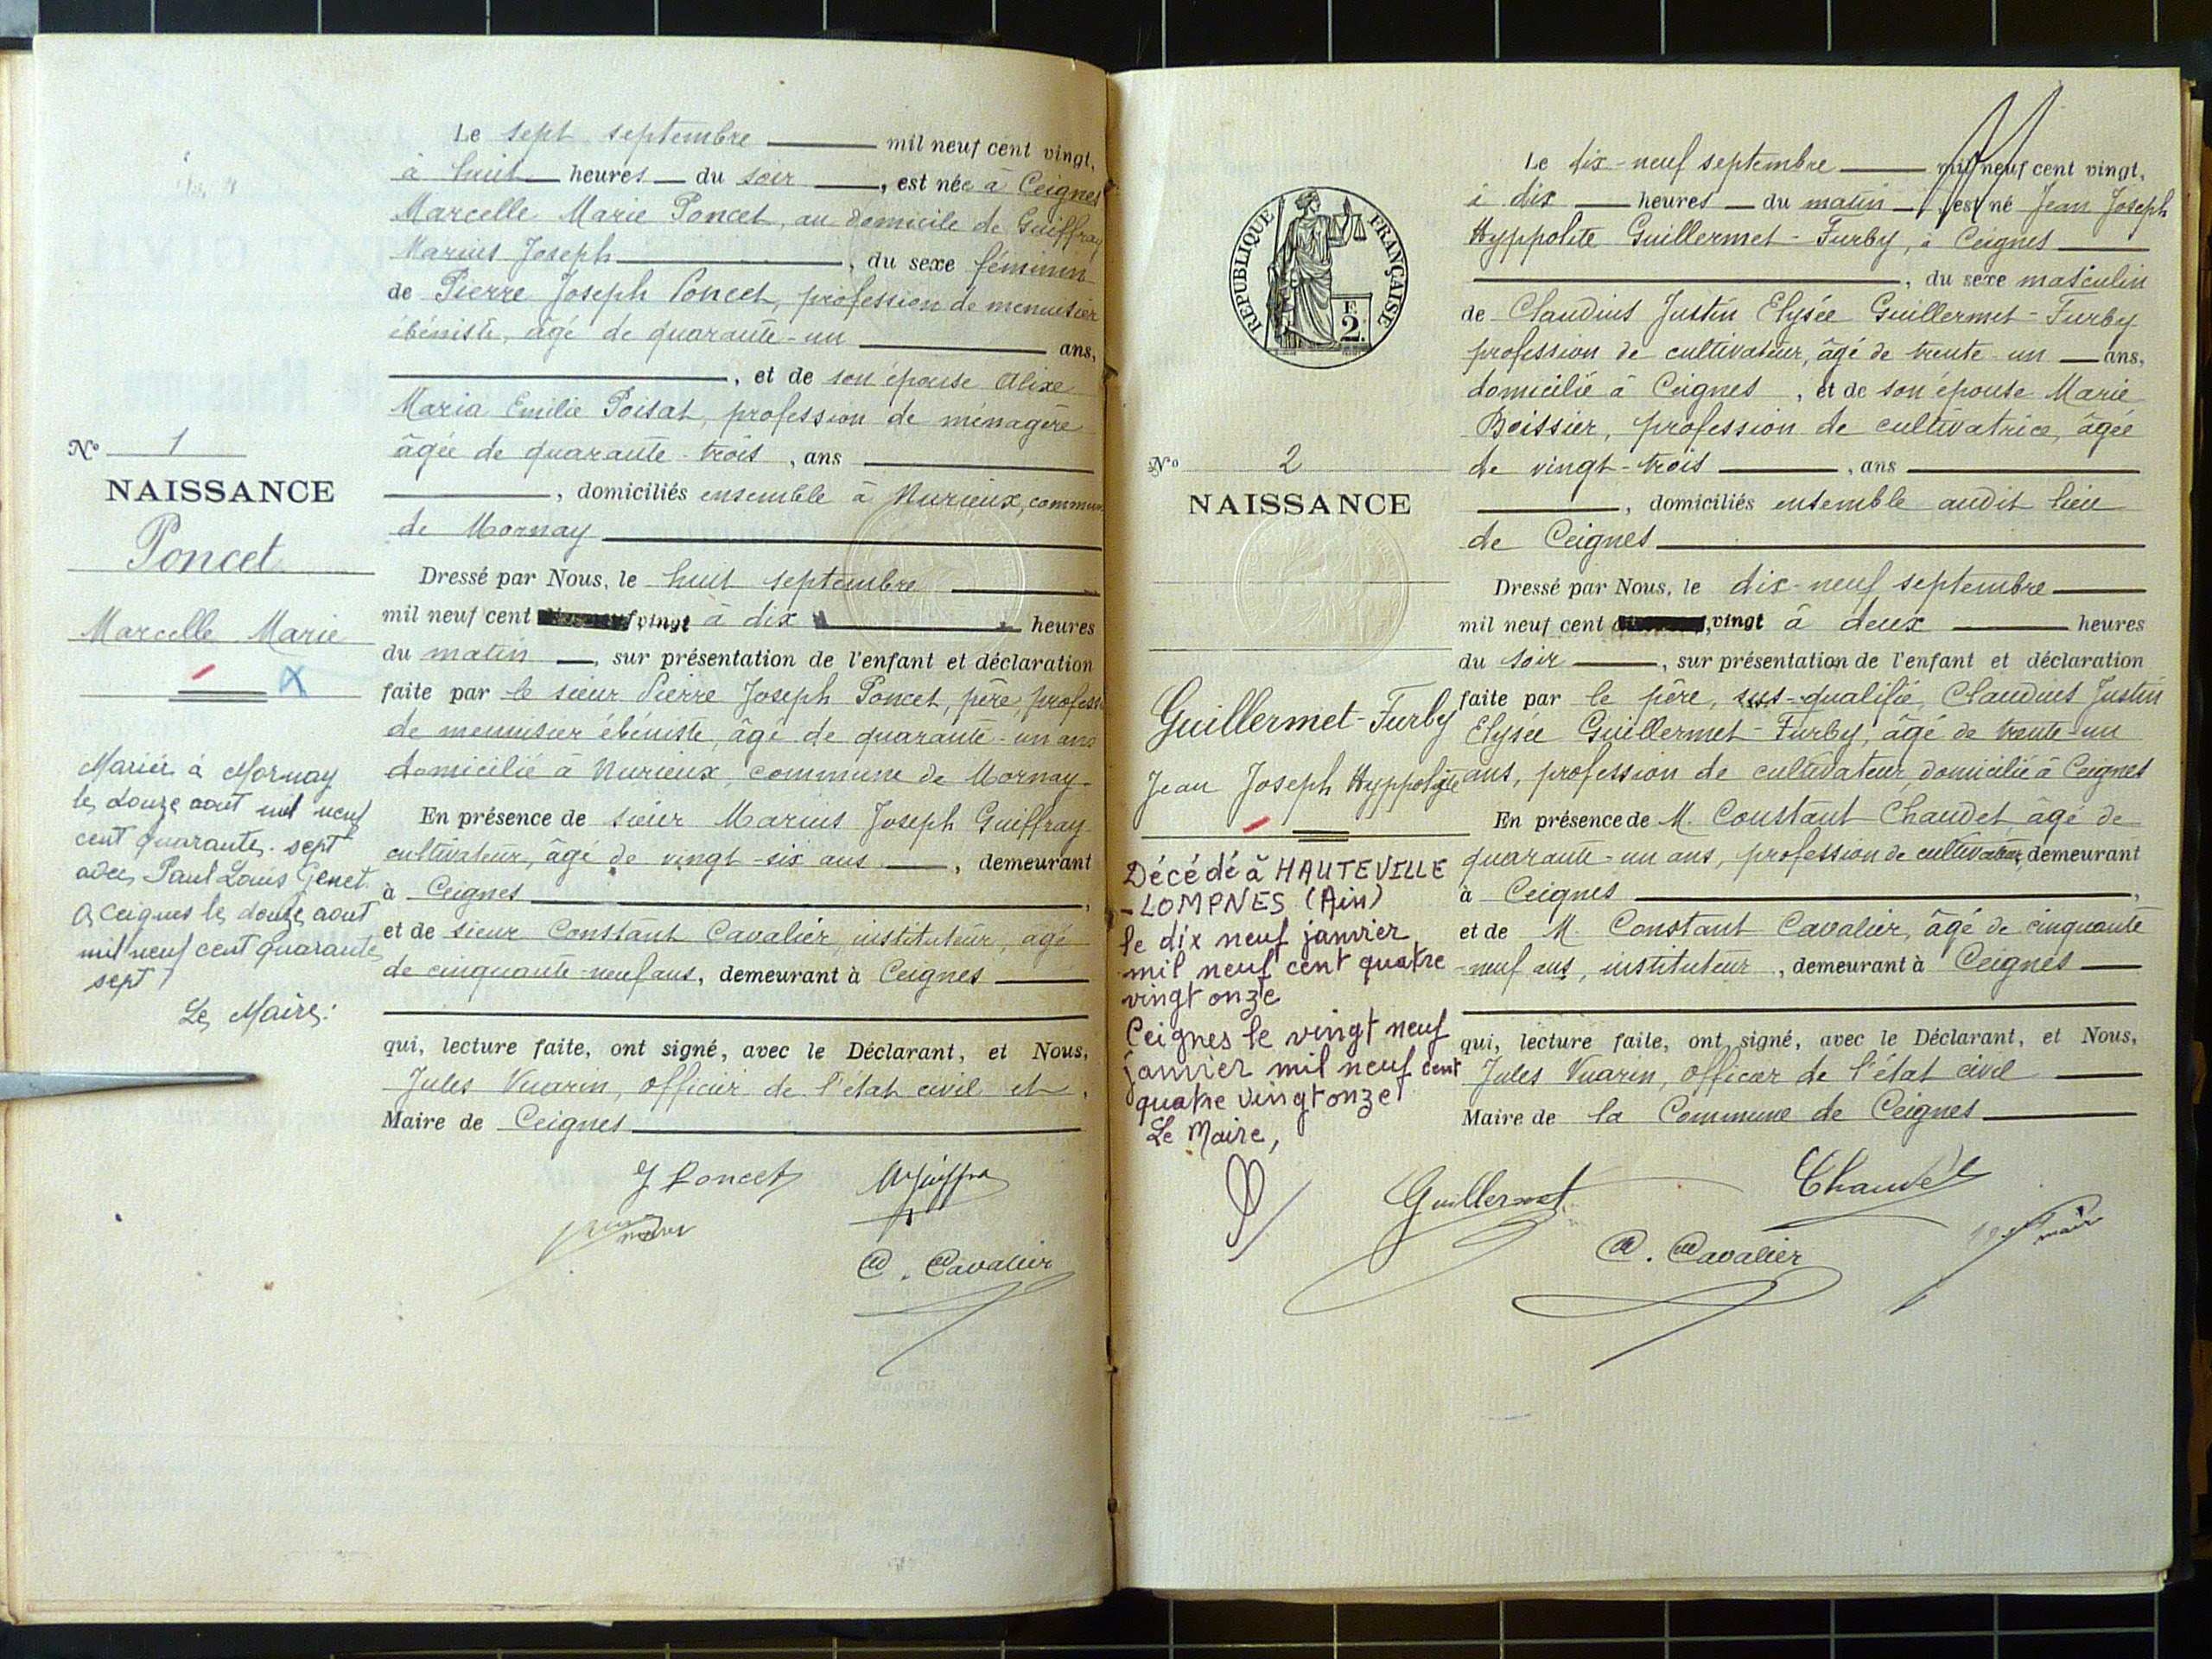 Le sept septembre mil neuf cent vingt,
à huit heures du soir, est née à Ceignes
Marcelle Marie Poncet, au domicile de Guiffray
Marius Joseph, du sexe féminin
de Pierre Joseph Poncet, profession de menuisier
ébéniste, âgé de quarante-un ans,
, et de son épouse Alixe
Maria Emilie Poisat, profession de ménagère
âgée de quarante-trois, ans
, domiciliés ensemble à Nurieux, commune
de Mornay
Dressé par Nous, le huit septembre
mil neuf cent vingt à dix heures
du matin, sur présentation de l'enfant et déclaration
faite par le sieur Pierre Joseph Poncet, père, profess
de menuisier ébéniste, âgé de quarante-un ans
domicilié à Nurieux, commune de Mornay
En présence de sieur Marius Joseph Guiffray
cultivateur, âgé de vingt-six ans, demeurant
à Ceignes,
et de sieur Constant Cavalier, instituteur, agé
de cinquante-neuf ans, demeurant à Ceignes
qui, lecture faite, ont signé, avec le Déclarant, et Nous,
Jules Vuarin, officier de l'état civil et
Maire de Ceignes
J Poncet
C. Cavalier
N° 1
NAISSANCE
Poncet
Marcelle Marie
Mariée à Mornay
le douze aout mil neuf
cent quarante-sept
avec Paul Louis Genet
A Ceignes le douze aout
mil neuf cent quarante
sept
Le Maire:
REPUBLIQUE FRANÇAISE
F
2
N° 2
NAISSANCE
Guillermet-Furby
Jean Joseph Hyppolyte
Décédé à HAUTEVILLE
-LOMPNES (Ain)
le dix neuf janvier
mil neuf cent quatre
vingt onze
Ceignes le vingt neuf
janvier mil neuf cent
quatre vingt onze
Le Maire,
Le dix-neuf septembre mil neuf cent vingt,
à dix heures du matin, est né Jean Joseph
Hyppolite Guillermet-Furby, à Ceignes
, du sexe masculin
de Claudius Justin Elysée Guillermet-Furby
profession de cultivateur, âgé de trente-un ans,
domicilié à Ceignes, et de son épouse Marie
Boissier, profession de cultivatrice, âgée
de vingt-trois, ans
, domiciliés ensemble audit lieu
de Ceignes
Dressé par Nous, le dix-neuf septembre
mil neuf cent vingt à deux heures
du soir, sur présentation de l'enfant et déclaration
faite par le père, sus-qualifié, Claudius Justin
Elysée Guillermet-Furby, âgé de trente-un
ans, profession de cultivateur, domicilié à Ceignes
En présence de M. Constant Chaudet, âgé de
quarante-un ans, profession de cultivateur, demeurant
à Ceignes,
et de M. Constant Cavalier, âgé de cinquante
-neuf ans, instituteur, demeurant à Ceignes
qui, lecture faite, ont signé, avec le Déclarant, et Nous,
Jules Vuarin, officier de l'état civil
Maire de la Commune de Ceignes
Guillermet
Chaudet
C. Cavalier